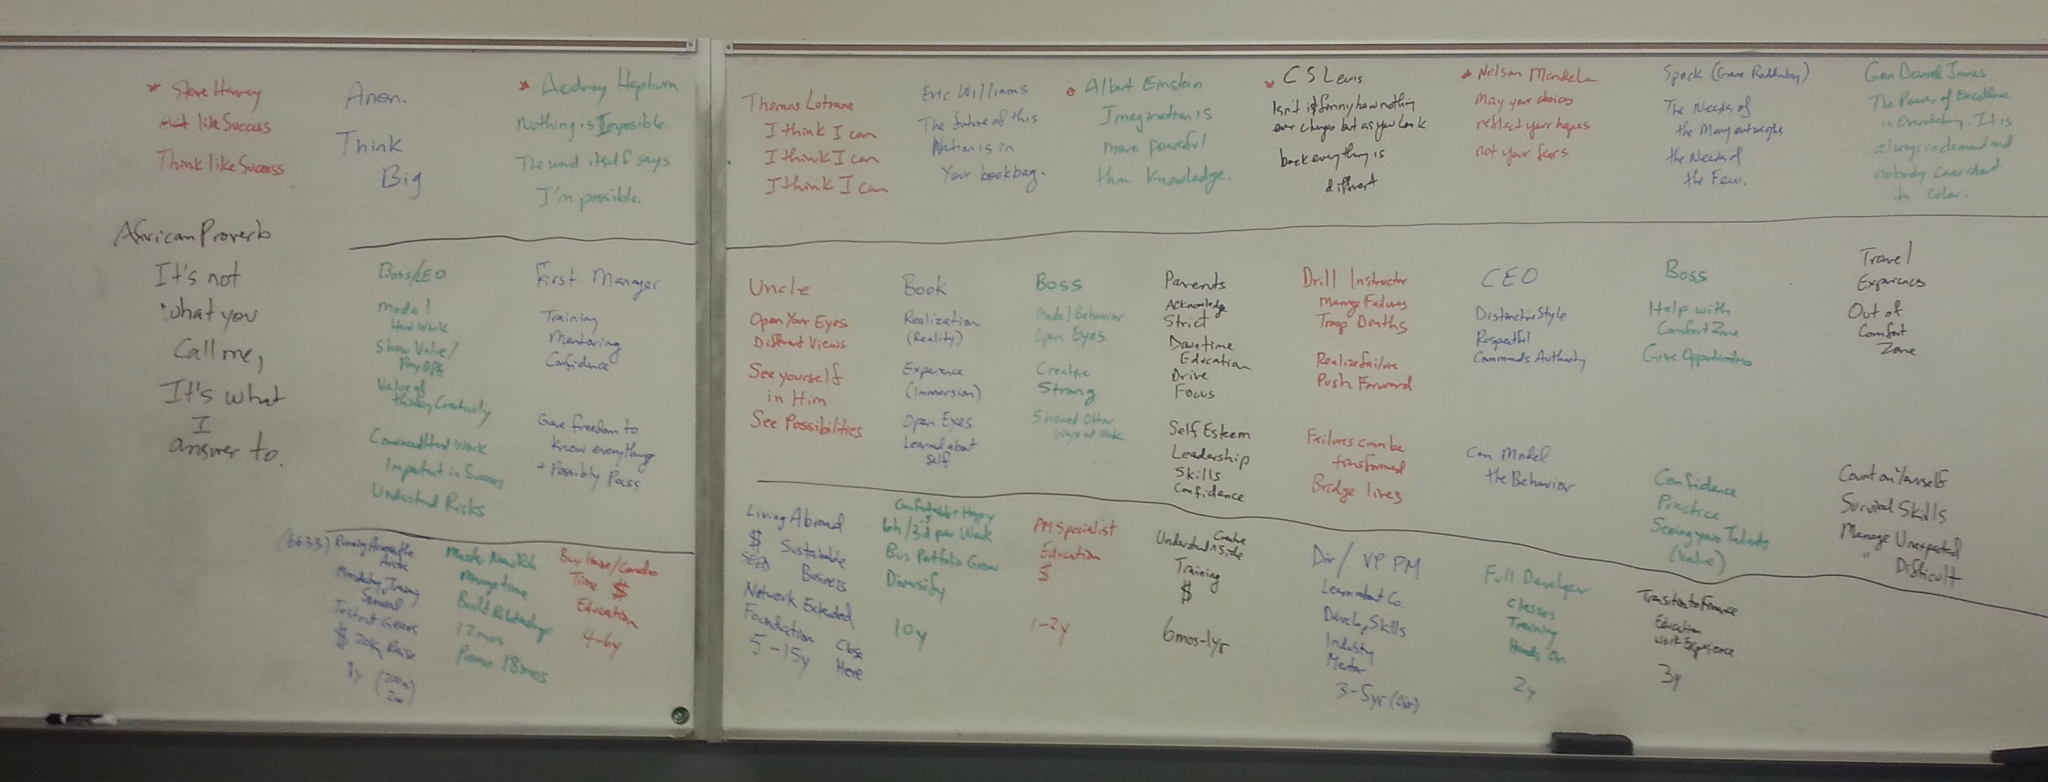 * Steve Harvey
like Success
Think like Success
Anon.
Think
Big
* Audrey Hepburn
Nothing is Impossible.
The word itself says
I'm possible.
African Proverb
It's not
what you
Call me,
It's what
I
answer to.
Thomas Lotrane
I think I can
I think I can
I think I can
Eric Williams
The future of this
Nation is in
Your bookbag.
Albert Einstein
Imagination is
more powerful
than Knowledge.
C S Lewis
Isn't it funny how nothing
ever changes but as you look
back everything is
different
* Nelson Mandela
May your choices
reflect your hopes
not your fears
Spock (Gene Roddenbery)
The Needs of
the Many outweighs
the Needs of
the Few.
Gen Daniel James
The Power of Excellence
is Overwhelming. It is
always in demand and
nobody cares about
its color.
Boss/CEO
Model
Hard Work
Show Value/
Pay Offs
Value of
thinking Creatively
Hard Work
Important in Success
Understand Risks
First Manager
Training
Mentoring
Confidence
Gave freedom to
know everything
+ Possibly Pass
Uncle
Open Your Eyes
Different Views
See yourself
in Him
See Possibilities
Book
Realization
(Reality)
Experience
(Immersion)
Open Eyes
Learned about
Self
Boss
Model Behavior
Open Eyes
Creative
Strong
Showed Other
ways of Work
Parents
Acknowledge
Strict
Downtime
Education
Drive
Focus
Self Esteem
Leadership
Skills
Confidence
Drill Instructor
Manage Failures
Troop Deaths
Realize failure
Push Forward
Failures can be
transformed
Bridge lives
CEO
Distinctive Style
Respectful
Commands Authority
Can Model
the Behavior
Boss
Help with
Comfort Zone
Give Opportunities
Confidence
Practice
Seeing your Talents
(Value)
Travel
Experiences
Out of
Comfort
Zone
Count on Yourself
Survival Skills
Manage Unexpected
Difficult
(6633) Running
Mandatory Training
Seminal
$ 20K Raise
Master New Role
Manage time
Build Relationships
12 mos
Promo 18 mos
Buy House/Condo
Time $
Education
4-6y
Living Abroad
$ Sustainable
Business
Network Extended
Foundation Close
5-15y Here
Comfortable + Happy
6h/3d per Week
Bus Portfolio Grow
Diversify
10y
PM Specialist
Education
$
1-2y
Create
Understand
Training
$
6mos-1yr
Dir / VP PM
Learn about Co.
Develop Skills
Industry
Mentor
3-5yr (Dir)
Full Developer
Classes
Training
Hands On
2y
Transition to Finance
Education
Work Experience
3y